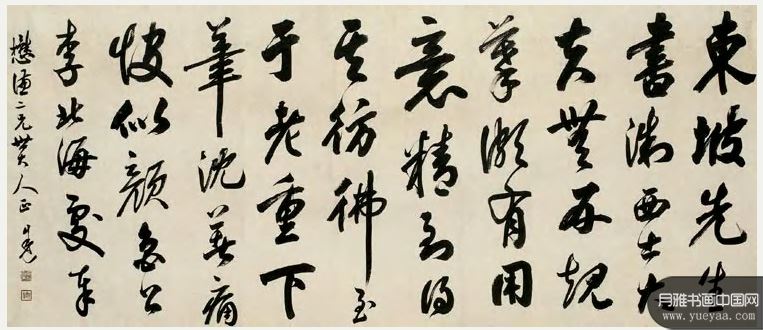 東坡先生
書浙西士大
夫無不規
摹頗有用
意精到得
其彷彿至
于老重下
筆沈著痛
快似顏魯公
李北海處
懋二兄大人正
月雅书画中国网
www.yueyaa.com